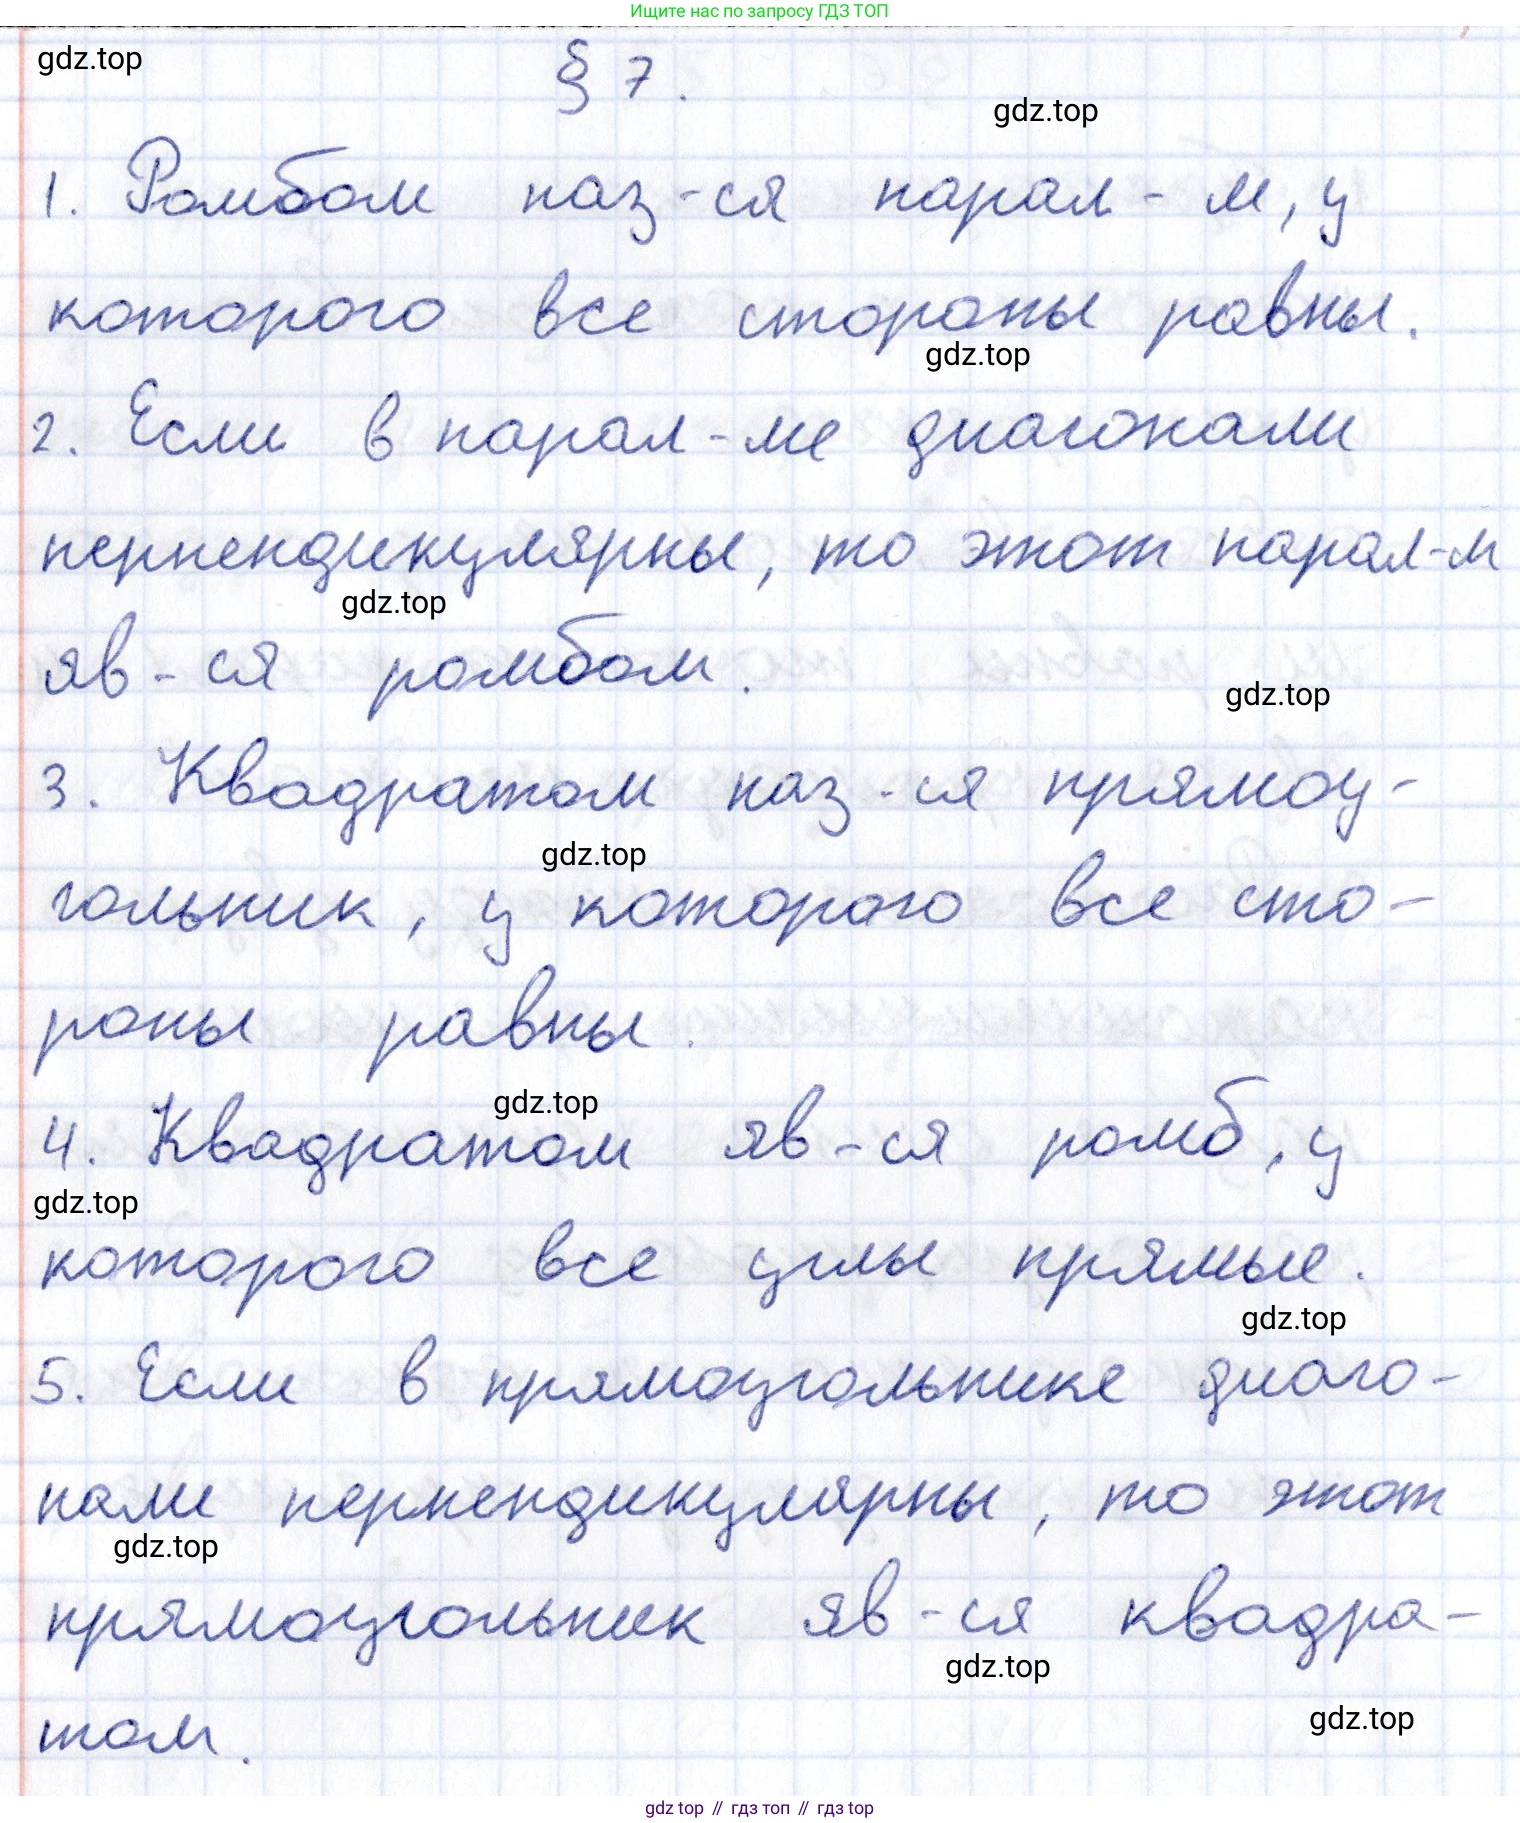 Ищите нас по запросу ГДЗ ТОП
gdz.top
§ 7.
gdz.top
1. Ромбом наз-ся парал-м, у
которого все стороны равны.
gdz.top
2. Если в парал-ме диагонали
перпендикулярны, то этот парал-м
gdz.top
яв-ся ромбом.
gdz.top
3. Квадратом наз-ся прямоу-
gdz.top
гольник, у которого все сто-
роны равны.
gdz.top
4. Квадратом яв-ся ромб, у
gdz.top
которого все углы прямые.
gdz.top
5. Если в прямоугольнике диаго-
нали перпендикулярны, то этот
gdz.top
прямоугольник яв-ся квадра-
gdz.top
том.
gdz.top
gdz top // гдз топ // гдз top